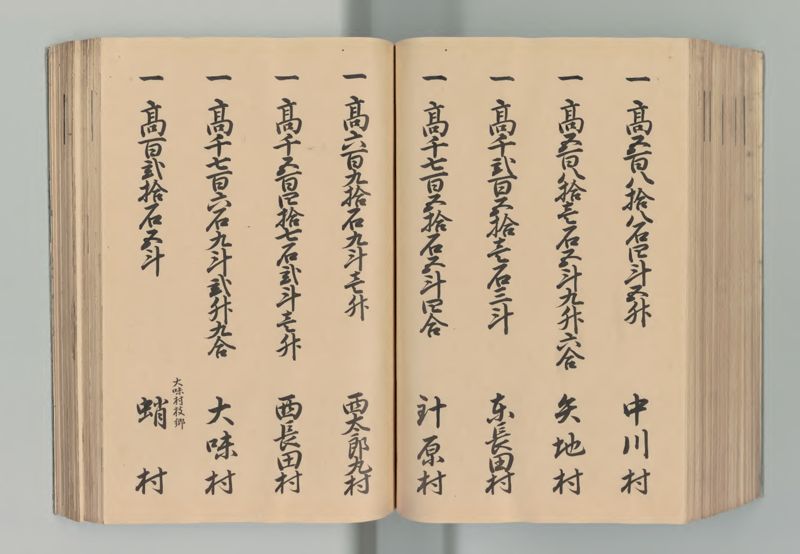 一 高五百八拾八石四斗五升 中川村
一 高五百八拾壱石五斗九升六合 矢地村
一 高千弐百五拾壱石三斗 东長田村
一 高千七百五拾石五斗四合 計原村
一 高六百九拾石九斗壱升 西太郎丸村
一 高千五百四拾七石弐斗壱升 西長田村
一 高千七百六石九斗弐升九合 大味村
大味村枝郷
一 高百弐拾石五斗 蛸村